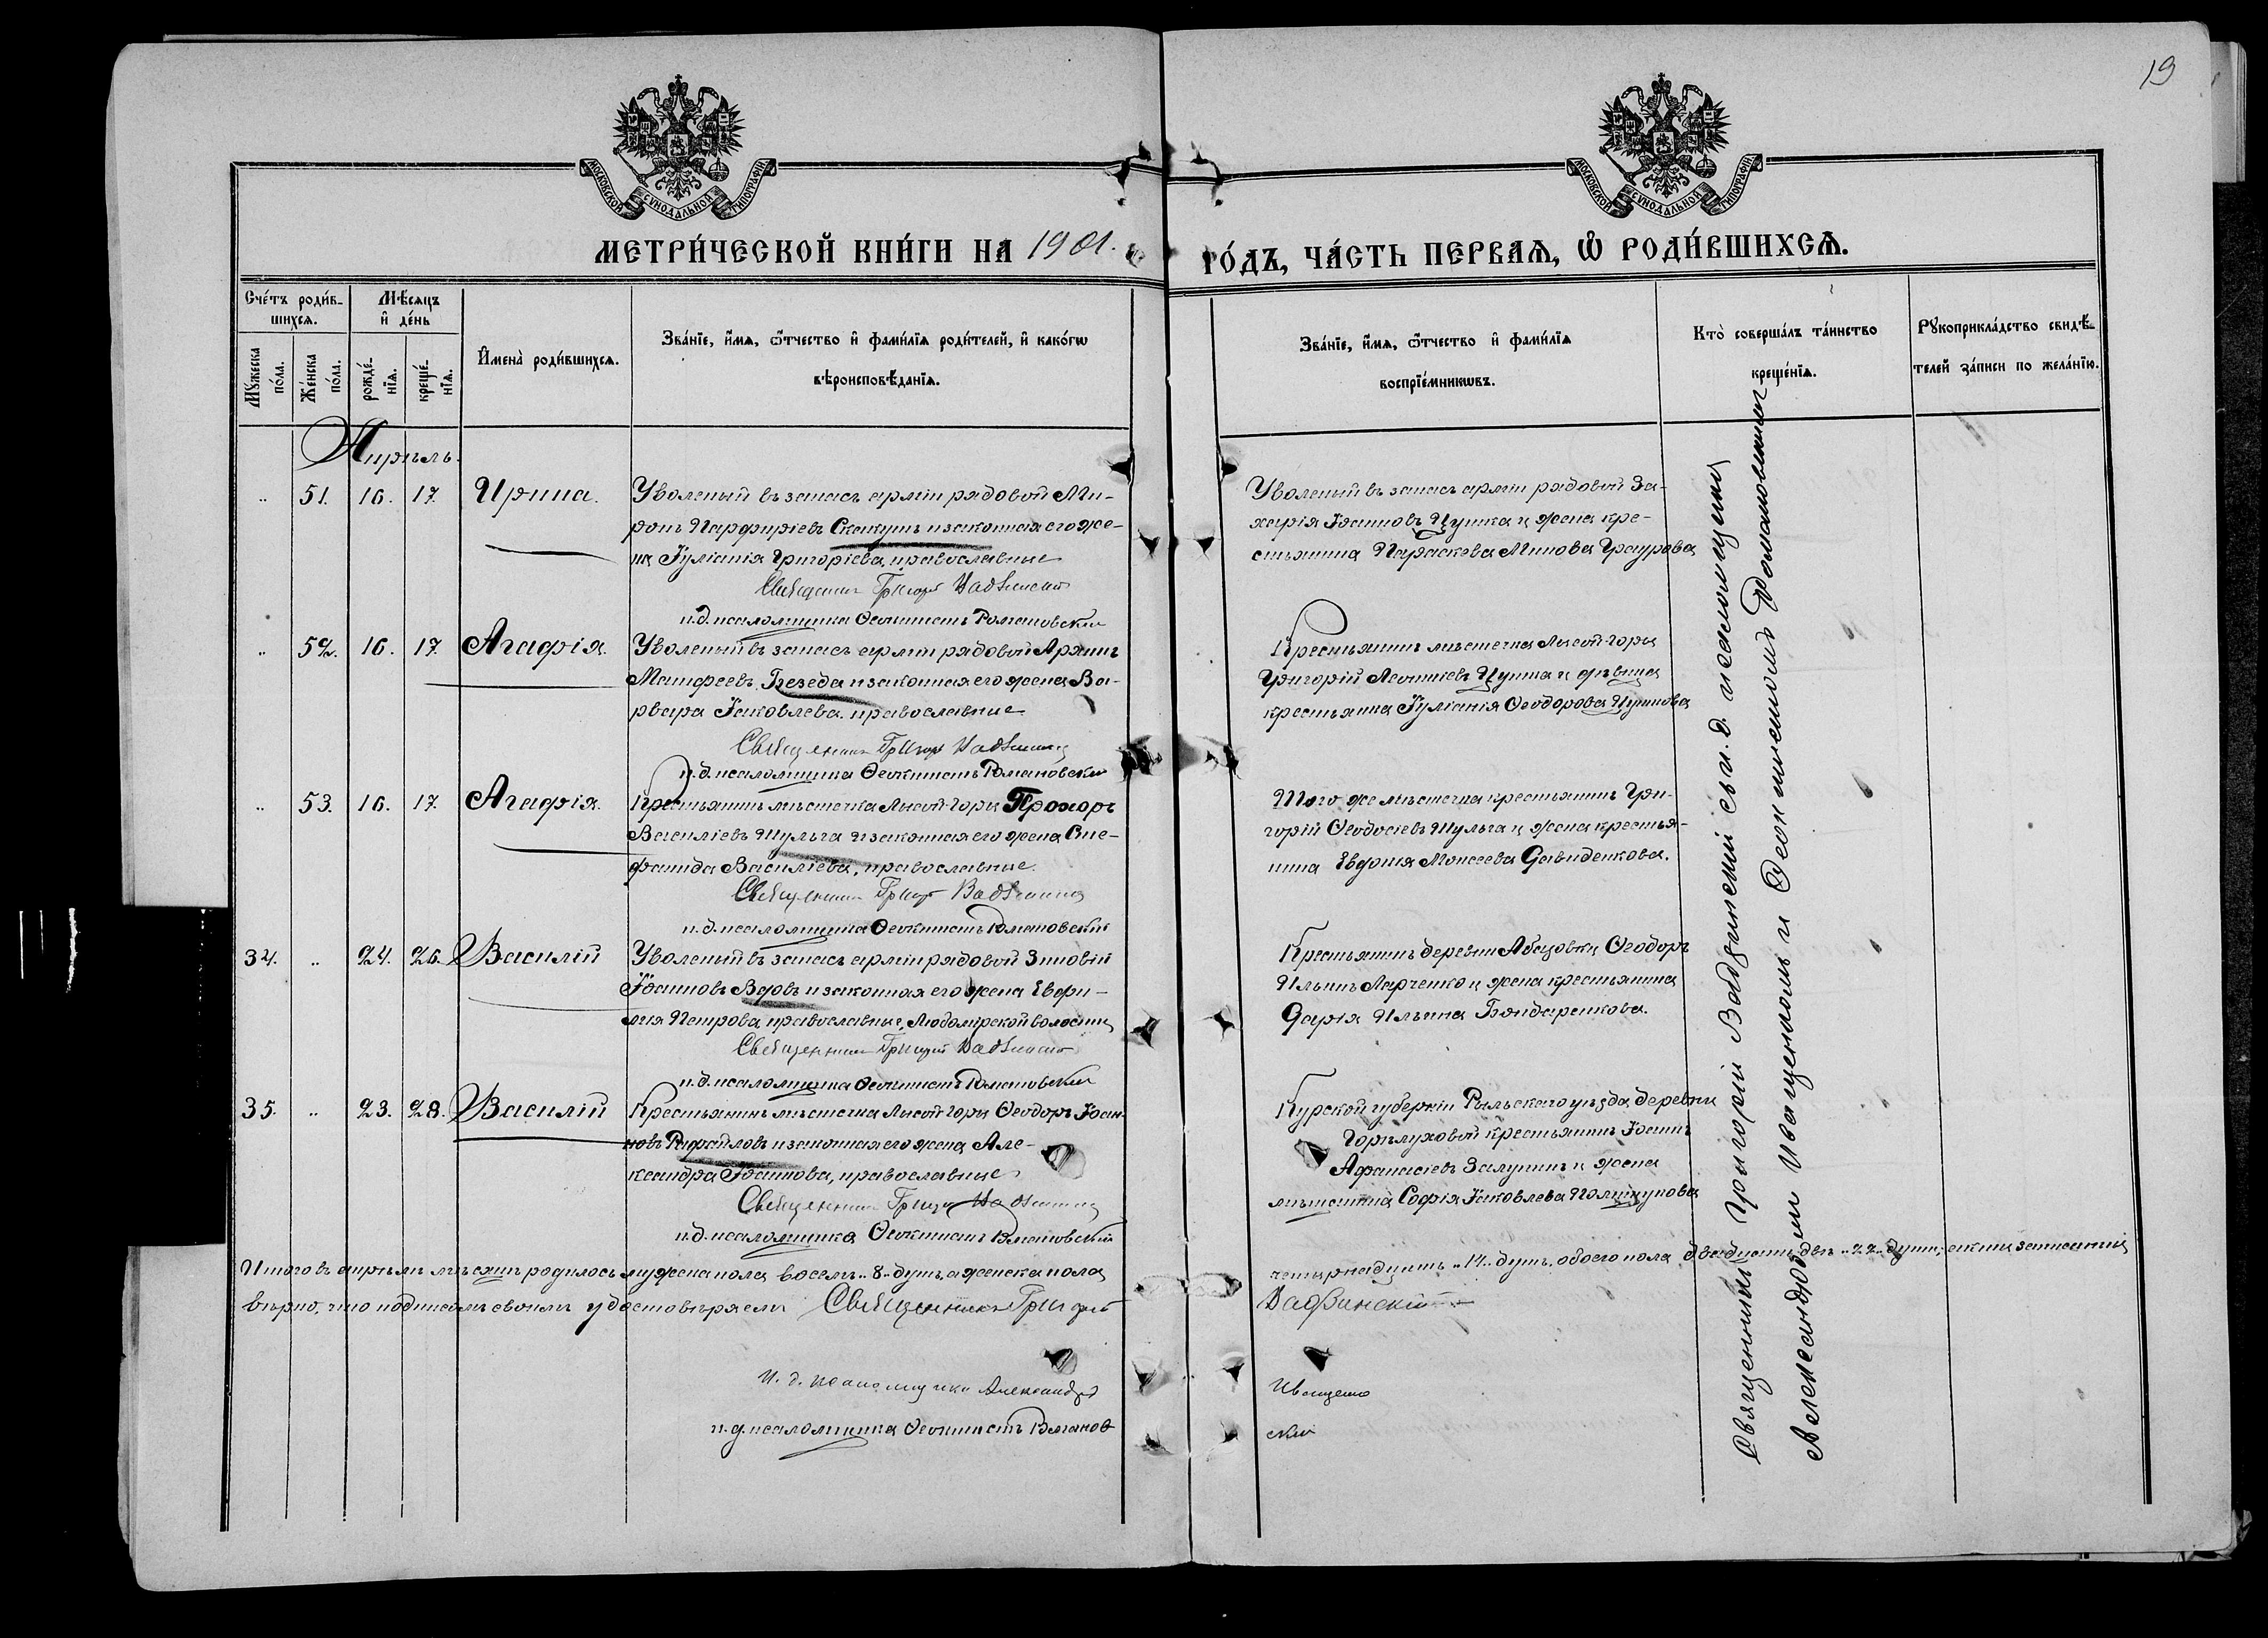 19
МОСКОВСКОЙ СУНОДАЛЬНОЙ ТИПОГРАФІИ
МОСКОВСКОЙ СУНОДАЛЬНОЙ ТИПОГРАФІИ
МЕТРИ́ЧЕСКОЙ КНИ́ГИ НА 1901.
ГО́ДЪ, ЧА́СТЬ ПЕРВАѦ, Ѡ РОДИ́ВШИХСѦ.
Сче́тъ роди́в-
шихсѧ.
Мꙋжеска по́ла.
Же́нска по́ла.
Мѣсѧцъ
и де́нь
рожде́-
нїѧ.
креще́-
нїѧ.
Имена̀ роди́вшихсѧ.
Зва́нїе, и́мѧ, ѻ́тчество и фами́лїѧ роди́телей, и како́гѡ
вѣроисповѣ́данїѧ.
Зва́нїе, и́мѧ, ѻ́тчество и фами́лїѧ
воспрїе́мникѡвъ.
Кто̀ соверша́лъ та́инство
креще́нїѧ.
Рꙋкоприкла́дство свидѣ́-
телей за́писи по жела́нїю.
Апрѣль.
„ 51. 16. 17. Ирина.
Уволеный въ запасъ арміи рядовой Ми-
ронъ Парфиріевъ Скакунъ и законная его же-
на Іуліанія Григоріева, православные
Священникъ Григорій Вадзинскій
и.д. псаломщика Ѳеоктистъ Романовскій
Уволеный въ запасъ арміи рядовой За-
харія Іоанновъ Цупка и жена кре-
стьянина Параскева Минова Граурова
„ 52. 16. 17. Агафія.
Уволеный въ запасъ арміи рядовой Аріянъ
Матфеевъ Безеда и законная его жена Ва-
рвара Іаковлева, православные
Священникъ Григорій Вадзинскій
и.д. псаломщика Ѳеоктистъ Романовскій
Крестьянинъ мѣстечка Лысой-Горы
Григорій Леонтіевъ Цупка и дѣвица
крестьянка Іуліанія Ѳеодорова Цупкова
„ 53. 16. 17. Агафія.
Крестьянинъ мѣстечка Лысой-Горы Прохоръ
Василіевъ Шульга и законная его жена Епе-
фанида Василіева, православные.
Священникъ Григорій Вадзинскій
и.д. псаломщика Ѳеоктистъ Романовскій
Того же мѣстечка крестьянинъ Гри-
горій Ѳеодосіевъ Шульга и жена крестья-
нина Евдокія Моисеева Давиденкова.
34. „ 24. 26. Василій
Уволеный въ запасъ арміи рядовой Зиновій
Іоанновъ Вдовъ и законная его жена Евфи-
мія Петрова православные, Любомірской волости,
Священникъ Григорій Вадзинскій
и.д. псаломщика Ѳеоктистъ Романовскій
Крестьянинъ деревни Абазовки Ѳеодоръ
Ильинъ Марченко и жена крестьянина
Дарія Ильина Бондаренкова.
35. „ 23. 28. Василій
Крестьянинъ мѣстечка Лысой-Горы Ѳеодоръ Іоан-
новъ Рафаиловъ и законная его жена Але-
ксандра Іоаннова, православные
Священникъ Григорій Вадзинскій
и.д. псаломщика Ѳеоктистъ Романовскій
Курской губерніи Рыльскаго уѣзда, деревни
крестьянинъ Іоаннъ
Афанасіевъ Залунинъ и жена
мѣщанина Софія Іаковлева
Священникъ Григорій Вадзинскій съ и.д. псаломщика
Александромъ Иващенкомъ и Ѳеоктистомъ Романовскимъ
Итого въ апрѣлѣ мѣсяцѣ родилось мужеска пола восемь „8„ душъ, а женска пола
четырнадцать „14„ душъ, обоего пола двадцать двѣ „22„ души; записаны
вѣрно, что подписомъ своимъ удостовѣряемъ Священникъ Григорій
Вадзинскій
И. д. псаломщика Александръ
Иващенко
и.д. псаломщика Ѳеоктистъ Романов
скій